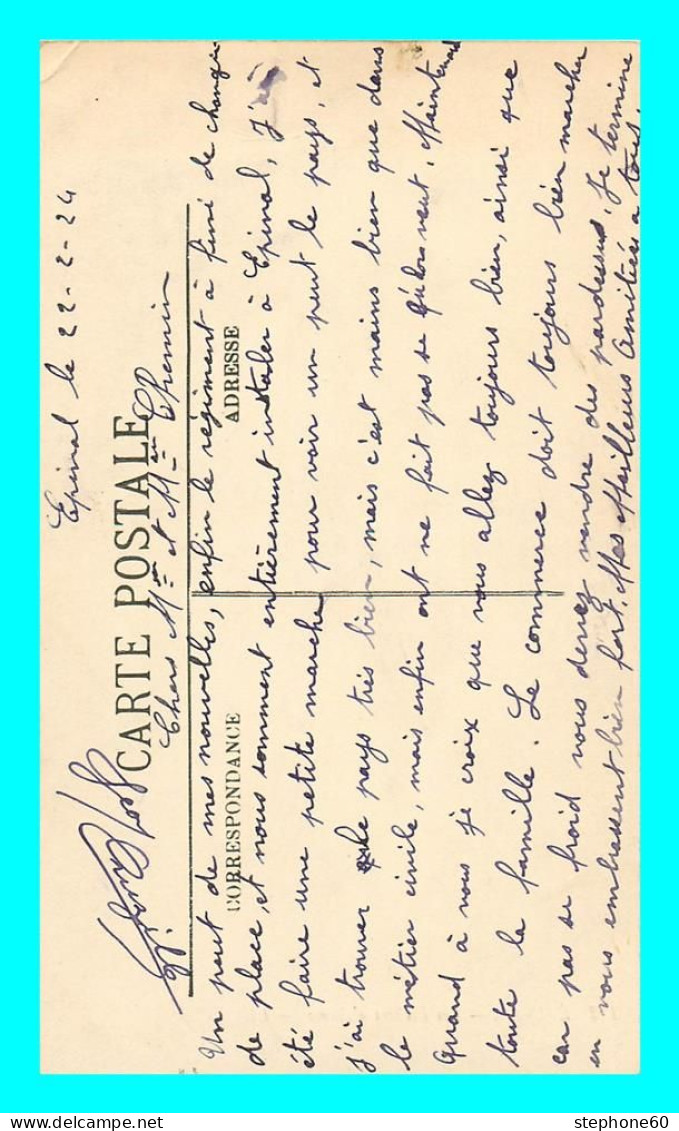 Epinal le 22-2-24
CARTE POSTALE
Chers Mr et Mme Chemin
CORRESPONDANCE
ADRESSE
Un peut de mes nouvelles, enfin le régiment à fini de changer
de place, et nous somment entièrement instaler à Epinal, J'ai
été faire une petite marche pour voir un peut le pays, et
j'ai trouver le pays très bien, mais c'est mains bien que dans
le métier civile, mais enfin ont ne fait pas se qu'lon veut, Maintenant
Quand à nous je croix que vous allez toujours bien, ainsi que
toute la famille. Le commerce doit toujours bien marcher
car pas se froid nous devez vendre des pardessus, Je termine
en vous embrassent bien fort, Mes Meilleurs Amitiés à tous.
stephone60